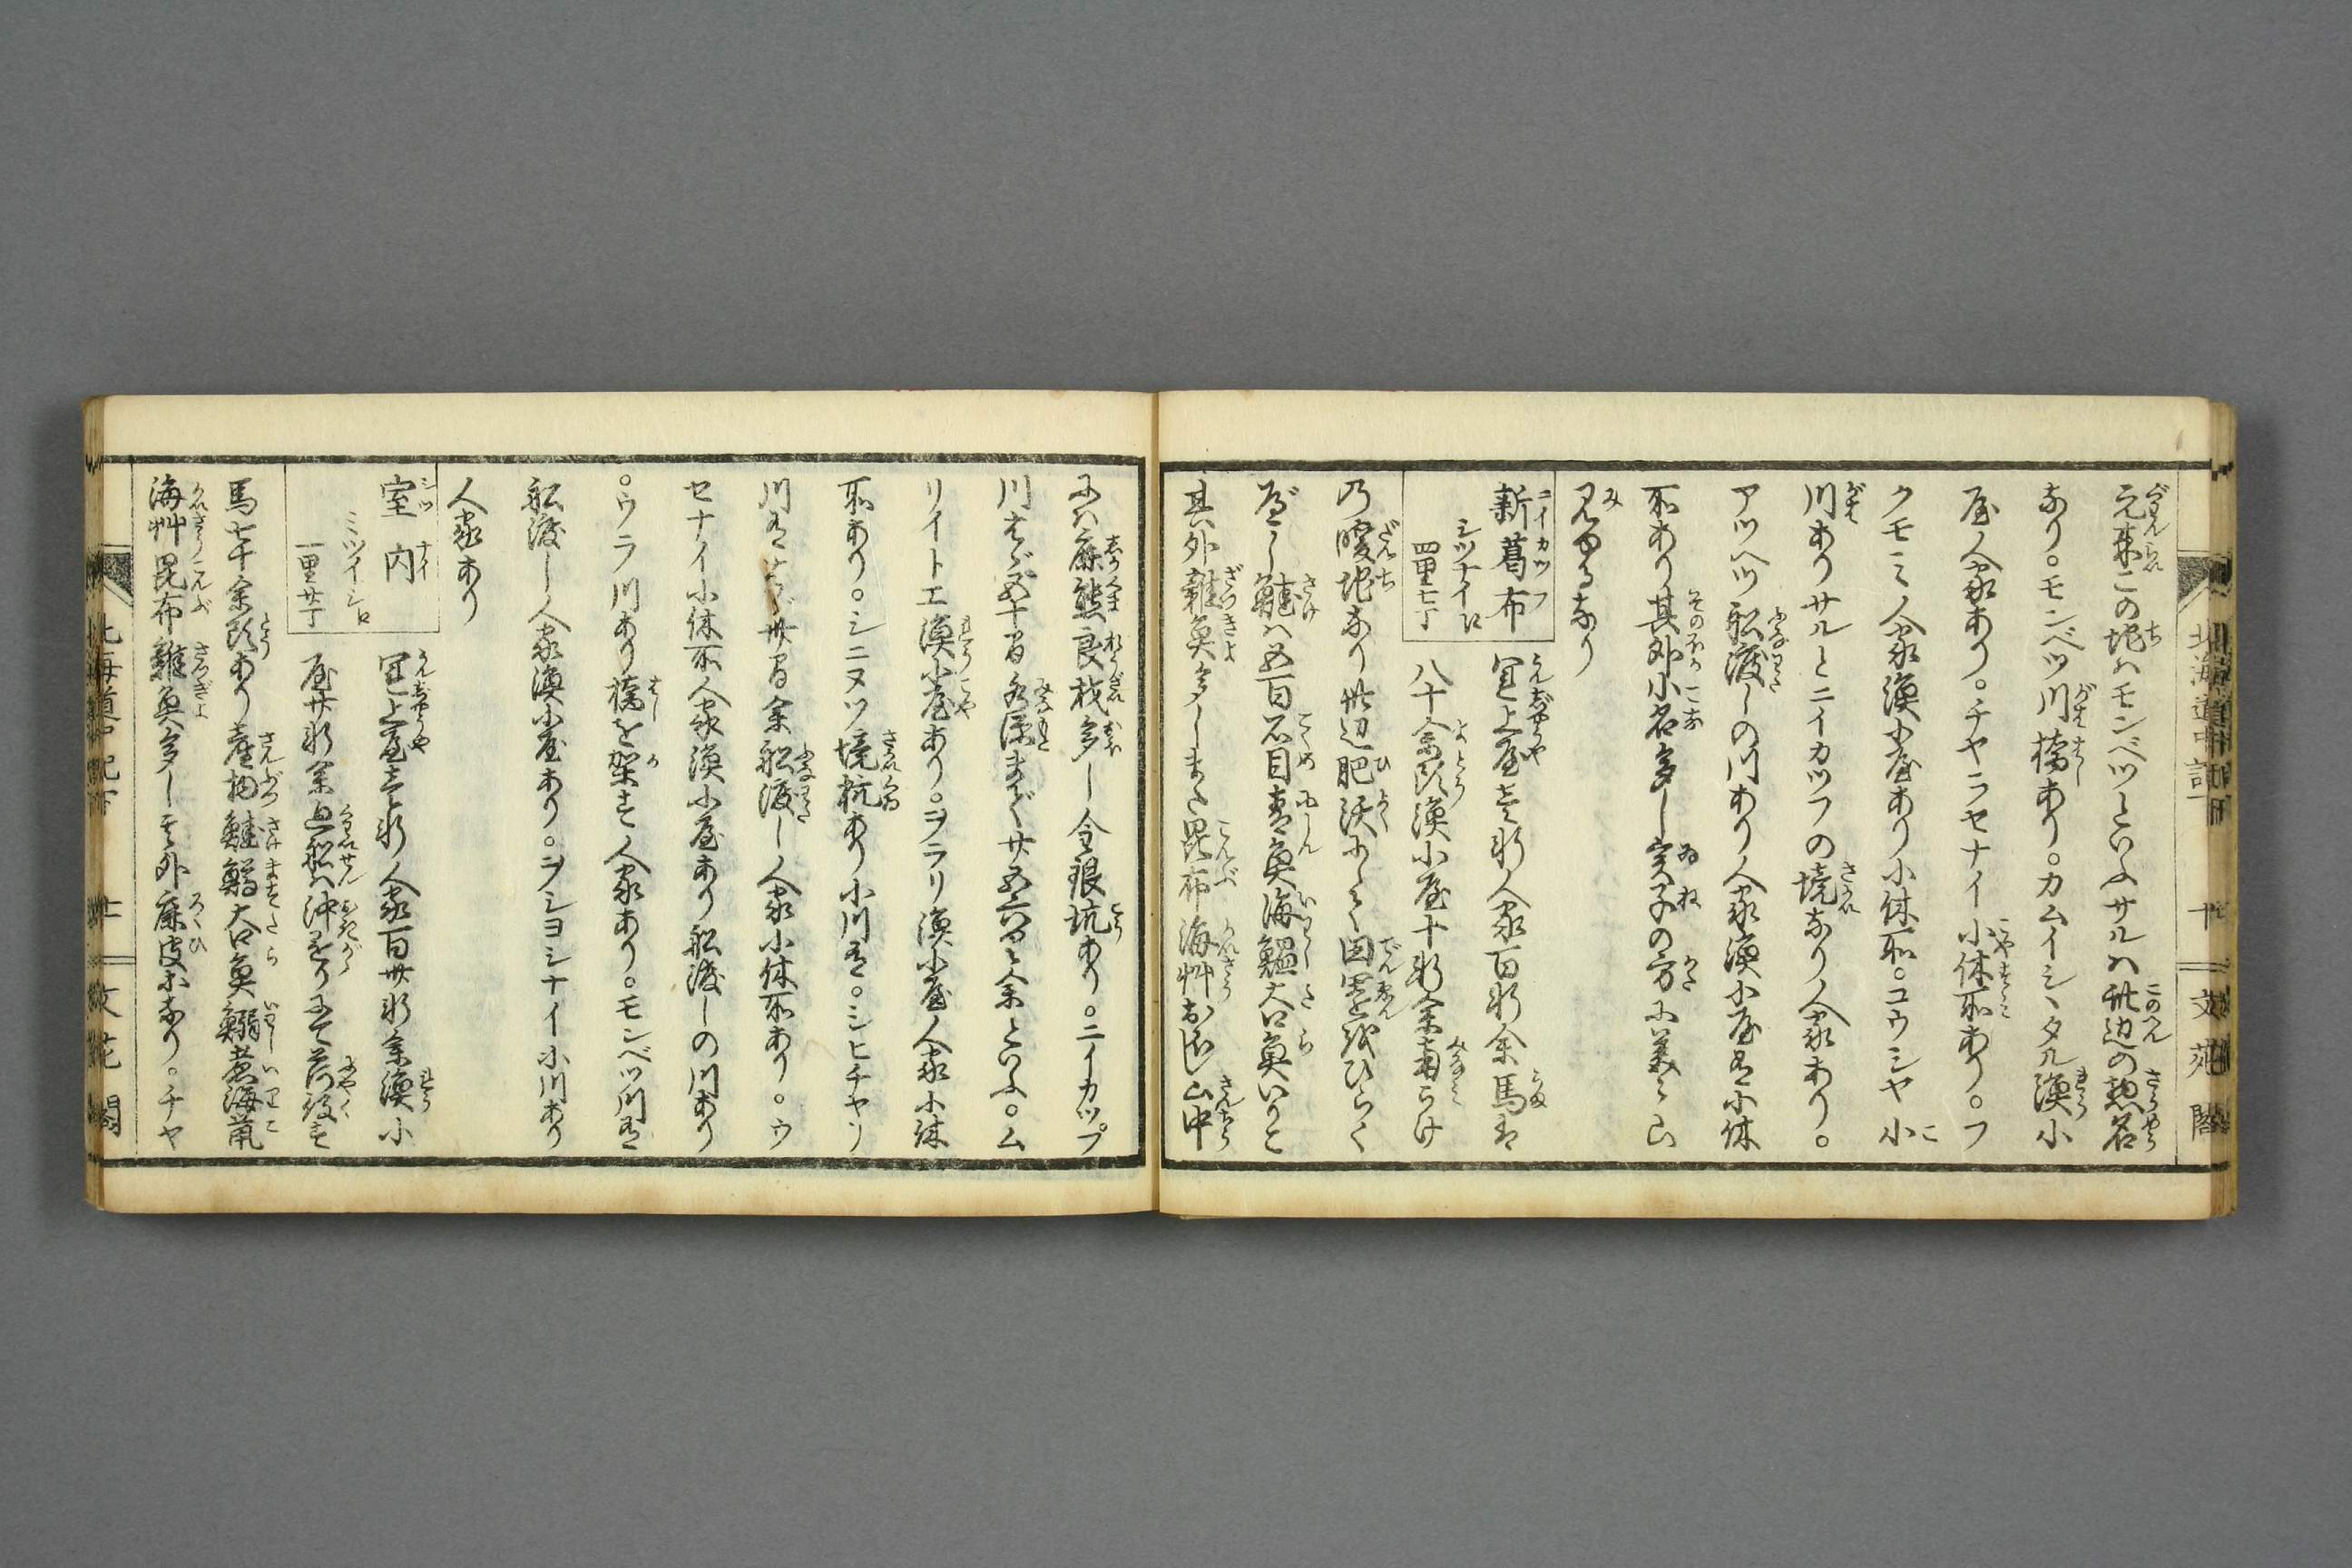 元来この地ハモンベツといふサルハ此辺の惣名
なり。モンベツ川橋あり。カムイシヽタル漁小
屋人家あり。チヤラセナイ小休所あり。フ
クモミ人家漁小屋あり小休所。コウシヤ小
川ありサルとニイカツフの境なり人家あり。
アツヘツ船渡しの川あり人家漁小屋有小休
所あり其外小名多し実子の方に美しき山
見ゆるなり
新葛布 シツナイ江 四里七丁
運上屋壱軒人家百軒余馬は
八十余頭漁小屋十軒余南らけ
乃暖地なり此辺肥沃にして田園を開ひらく
べし鮭ハ五百石目青魚海鰮大口魚いりこ
其外雑魚多しまた昆布海艸おほし山中
にハ鹿熊良材多し金銀坑あり。ニイカップ
川はゞ五十間水源まで廿五六里余といふ。ム
リイトエ漁小屋あり。ヲラリ漁小屋人家小休
所あり。シニヌツ境杭あり小川有。シヒチヤリ
川有はゞ卅間余船渡し人家小休所あり。ウ
セナイ小休所人家漁小屋あり船渡しの川あり
。ウラ川あり橋を架す人家あり。モンベツ川有
船渡し人家漁小屋あり。ヲシヨシナイ小川あり
人家あり
室内 ミツイシ江 一里廿丁
運上屋壱軒人家百卅軒余漁小
屋廿軒余廻船ハ沖懸りにて荷役す
馬七十余頭あり産物鮭鱒大口魚鰯煎海鼠
海艸昆布雑魚多し其外鹿皮等なり。チヤ
北海道中記下 十一 文苑閣